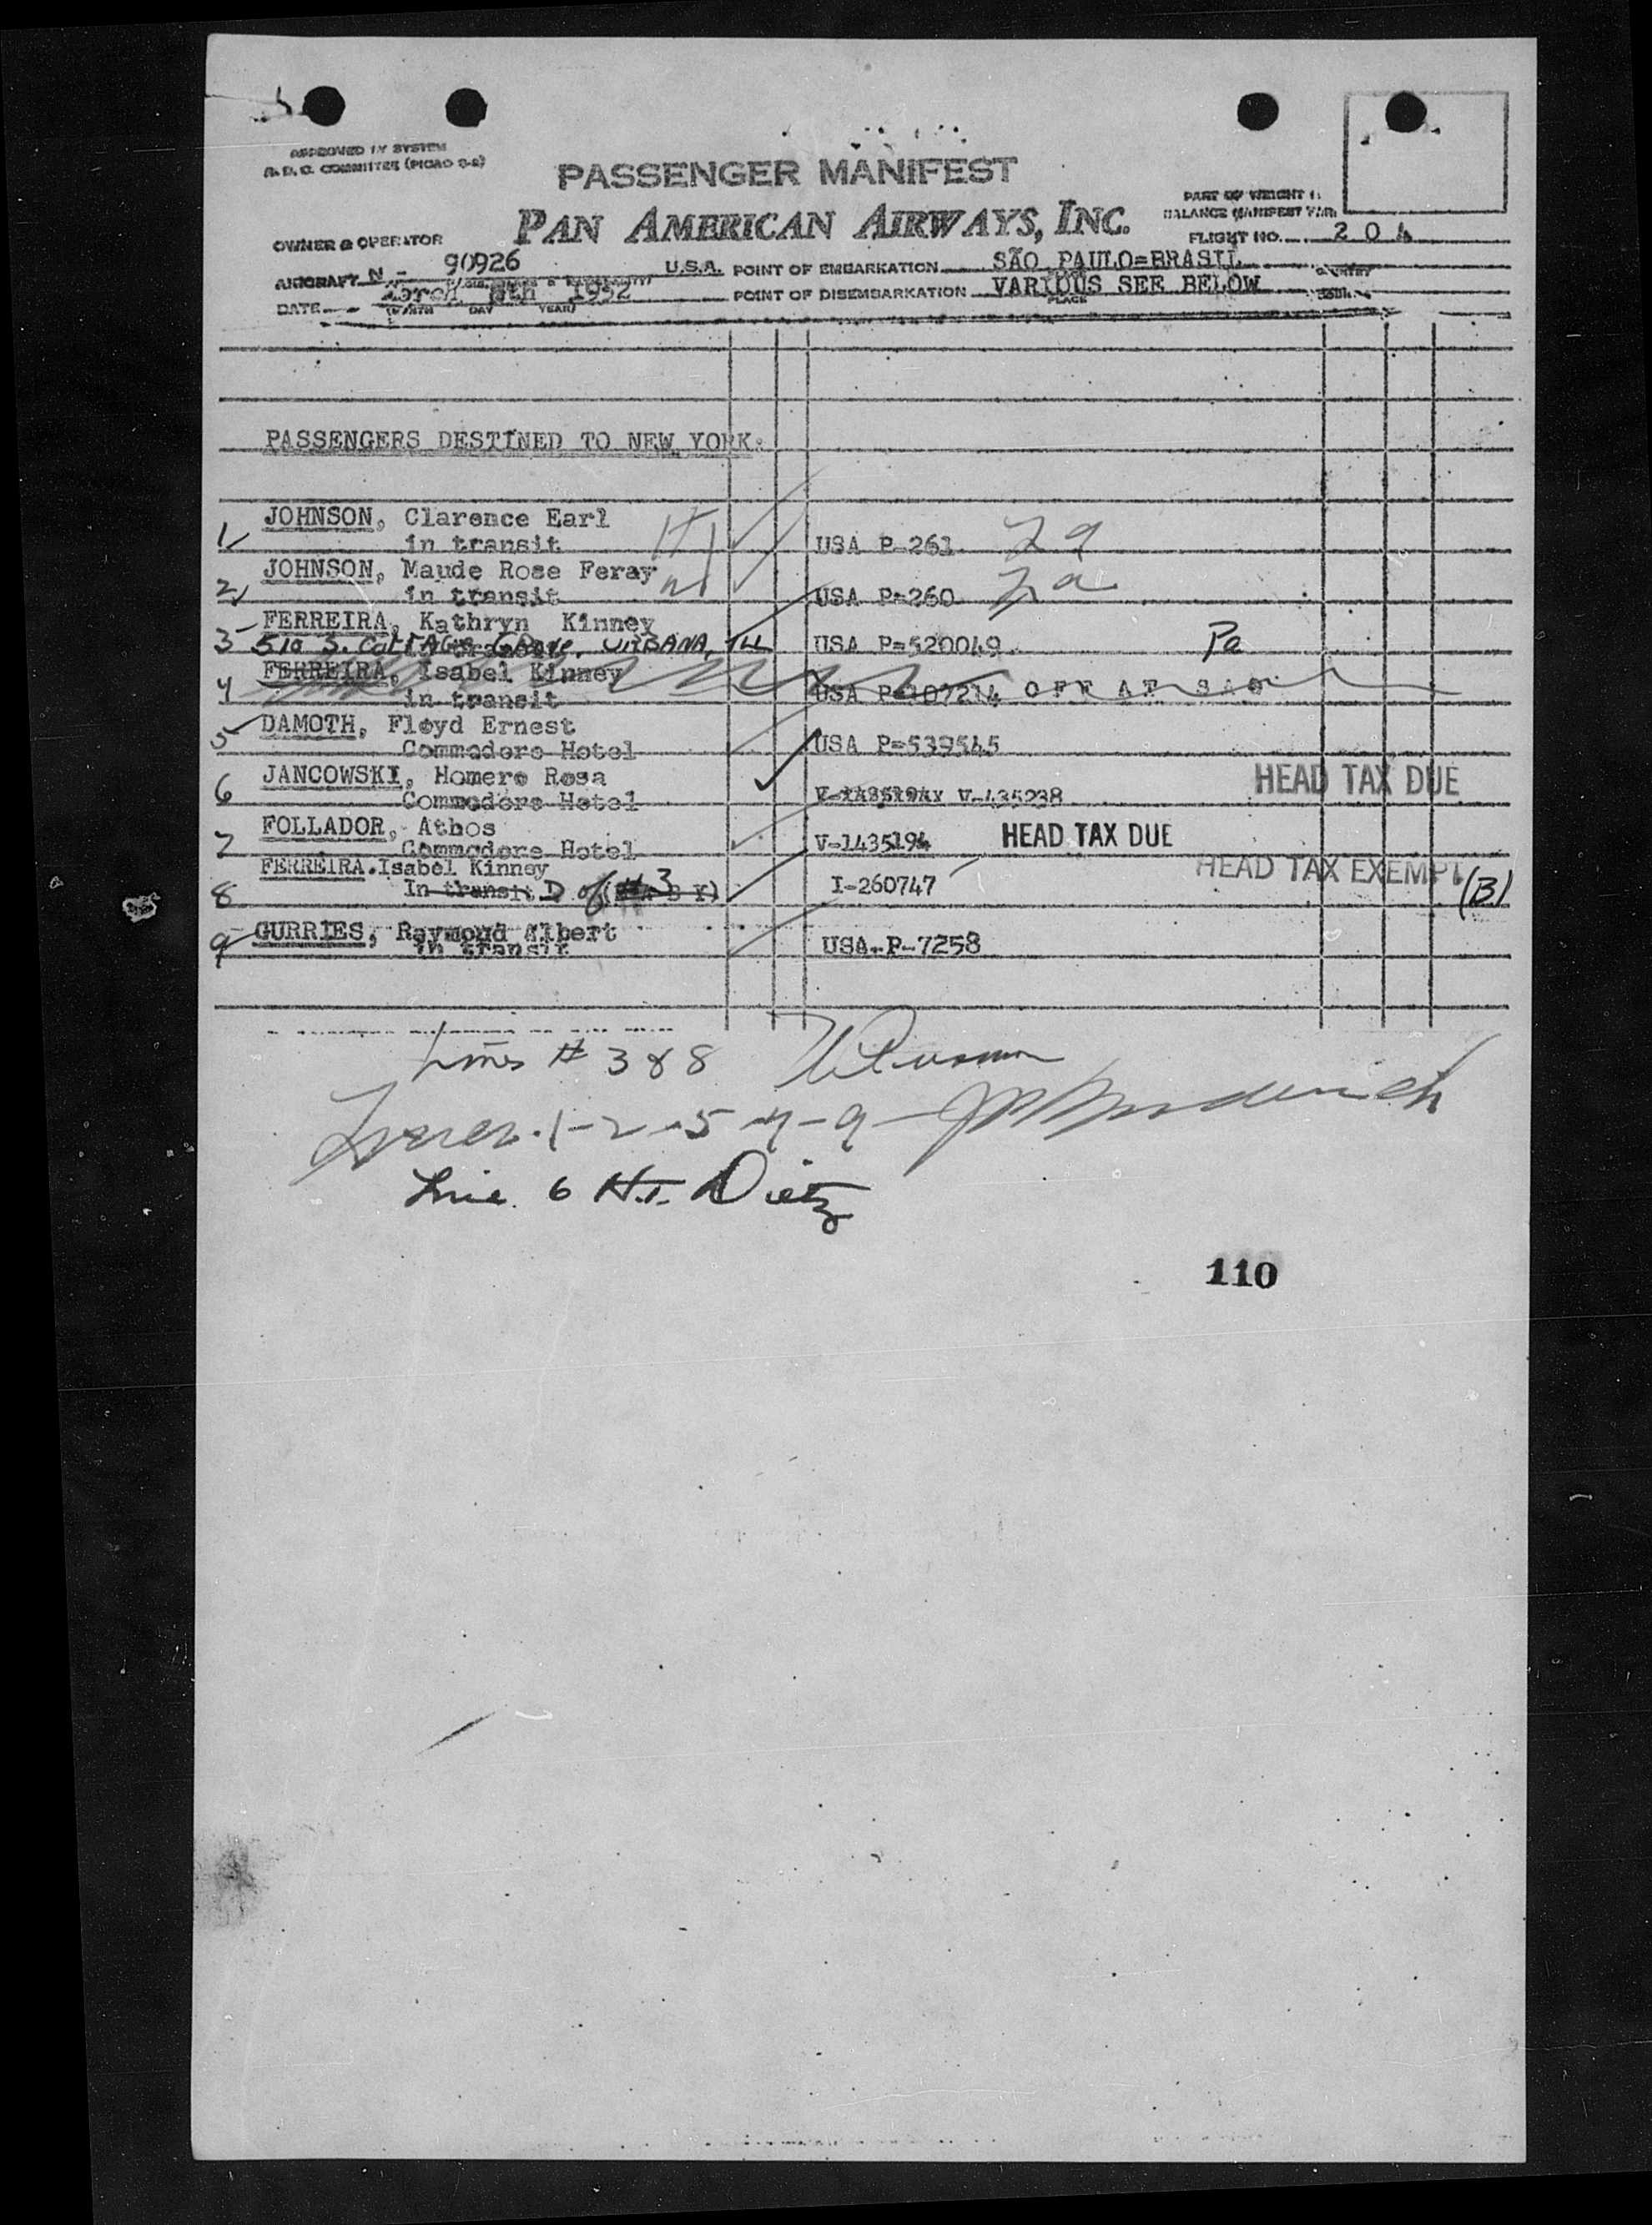 APPROVED BY SYSTEM
R. D. C. COMMITTEE (PICAO S-2)
PASSENGER MANIFEST
PAN AMERICAN AIRWAYS, INC.
PART OF WEIGHT &
BALANCE MANIFEST
OWNER & OPERATOR
FLIGHT NO. 204
AIRCRAFT N - 90926 U.S.A. POINT OF EMBARKATION SÃO PAULO=BRASIL
DATE March 8th 1952 POINT OF DISEMBARKATION VARIOUS SEE BELOW
(MONTH DAY YEAR) PLACE
PASSENGERS DESTINED TO NEW YORK:
1 JOHNSON, Clarence Earl
in transit USA P-261
2 JOHNSON, Maude Rose Feray
in transit USA P-260
3 FERREIRA, Kathryn Kinney
510 S. COTTAGE GROVE, URBANA, ILL USA P=520049
4 FERREIRA, Isabel Kinney
in transit USA P=107214 OFF AT
5 DAMOTH, Floyd Ernest
Commodore Hotel USA P=539545
6 JANCOWSKI, Homero Rosa HEAD TAX DUE
Commodore Hotel V-435238
7 FOLLADOR, Athos
Commodore Hotel V-1435194 HEAD TAX DUE
FERREIRA.Isabel Kinney HEAD TAX EXEMPT
8 In transit D of #3 I-260747 (B)
9 GURRIES, Raymond Albert
in transit USA-P-7258
Lines # 3 & 8
1-2-5-7-9
Line 6 H.T. Dietz
110